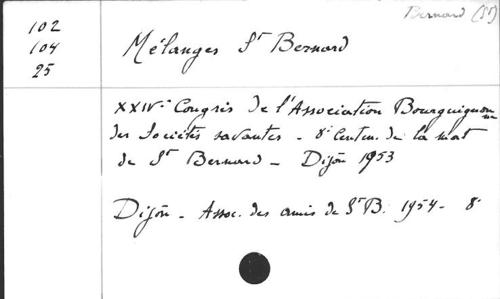 Bernard (St)
102
104
25
Mélanges St Bernard
XXIVe Congrès de l'Association Bourguignonne
des Sociétés savantes - 8e Centen. de la mort
de St Bernard - Dijon 1953
Dijon - Assoc. des amis de St B. 1954 - 8°